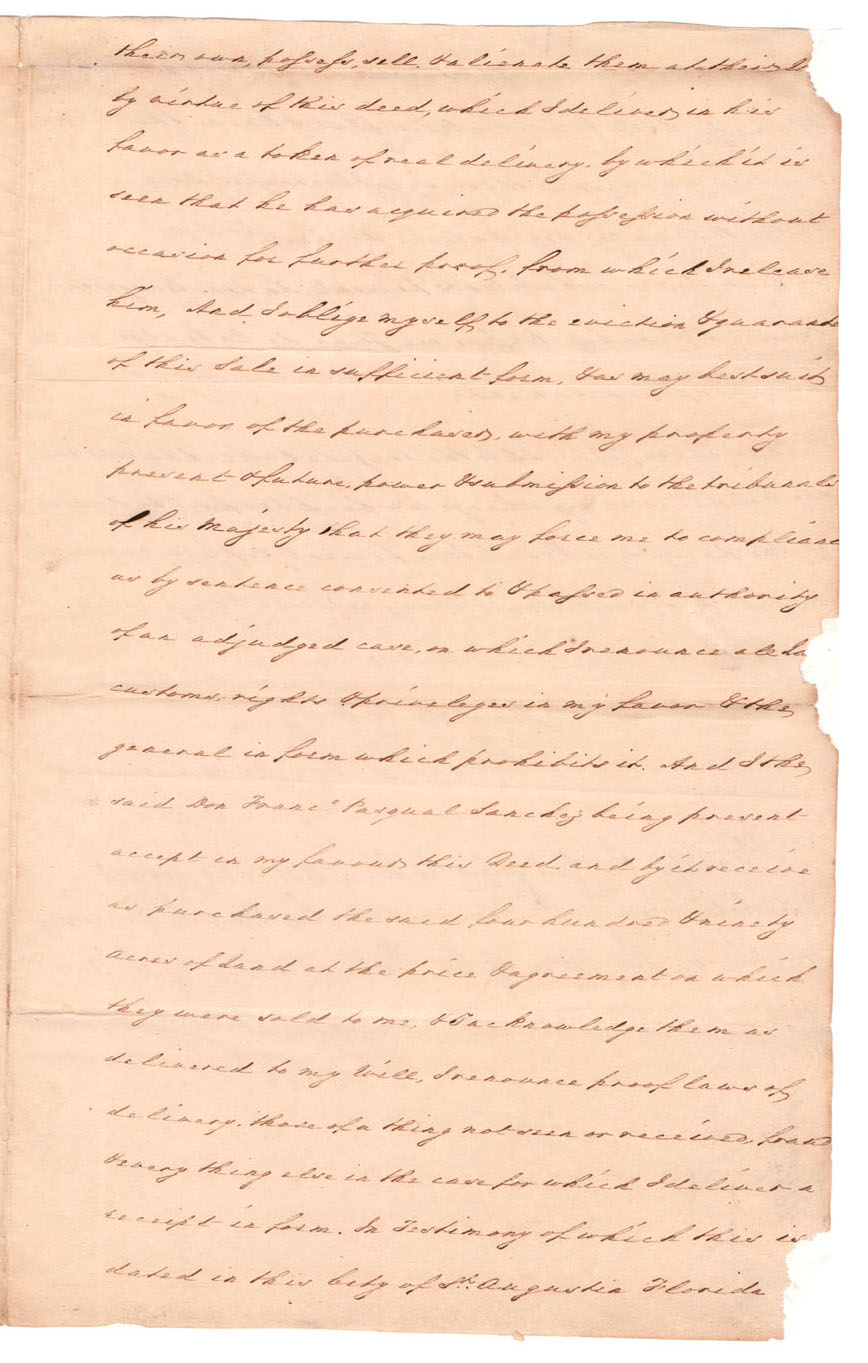 their own, possess, sell, & alienate them at their
by virtue of this deed, which I deliver, in his
favor as a token of real delivery, by which it is
seen that he has acquired the possession without
occasion for further proof, from which I release
him, And I oblige myself to the eviction & guarante
of this Sale in sufficient form, & as may best suit
in favor of the purchaser, with my property
present & future, power & submission to the tribunals
of his Majesty that they may force me to complianc
as by sentence consented to & passed in authority
of an adjudged case, on which I renounce all la
customs, rights & priveleges in my favor & the
general in form which prohibits it. And I the
said Don Franco. Pasqual Sanchez being present
accept in my favour this Deed and by it receive
as purchased the said four hundred & ninety
Acres of Land at the price & agreement on which
they were sold to me, & I acknowledge them as
delivered to my Will, I renounce proof laws of
delivery, those of a thing not seen or received, fraud
& every thing else in the case for which I deliver a
receipt in form. In Testimony of which this is
dated in this City of St. Augustin Florida